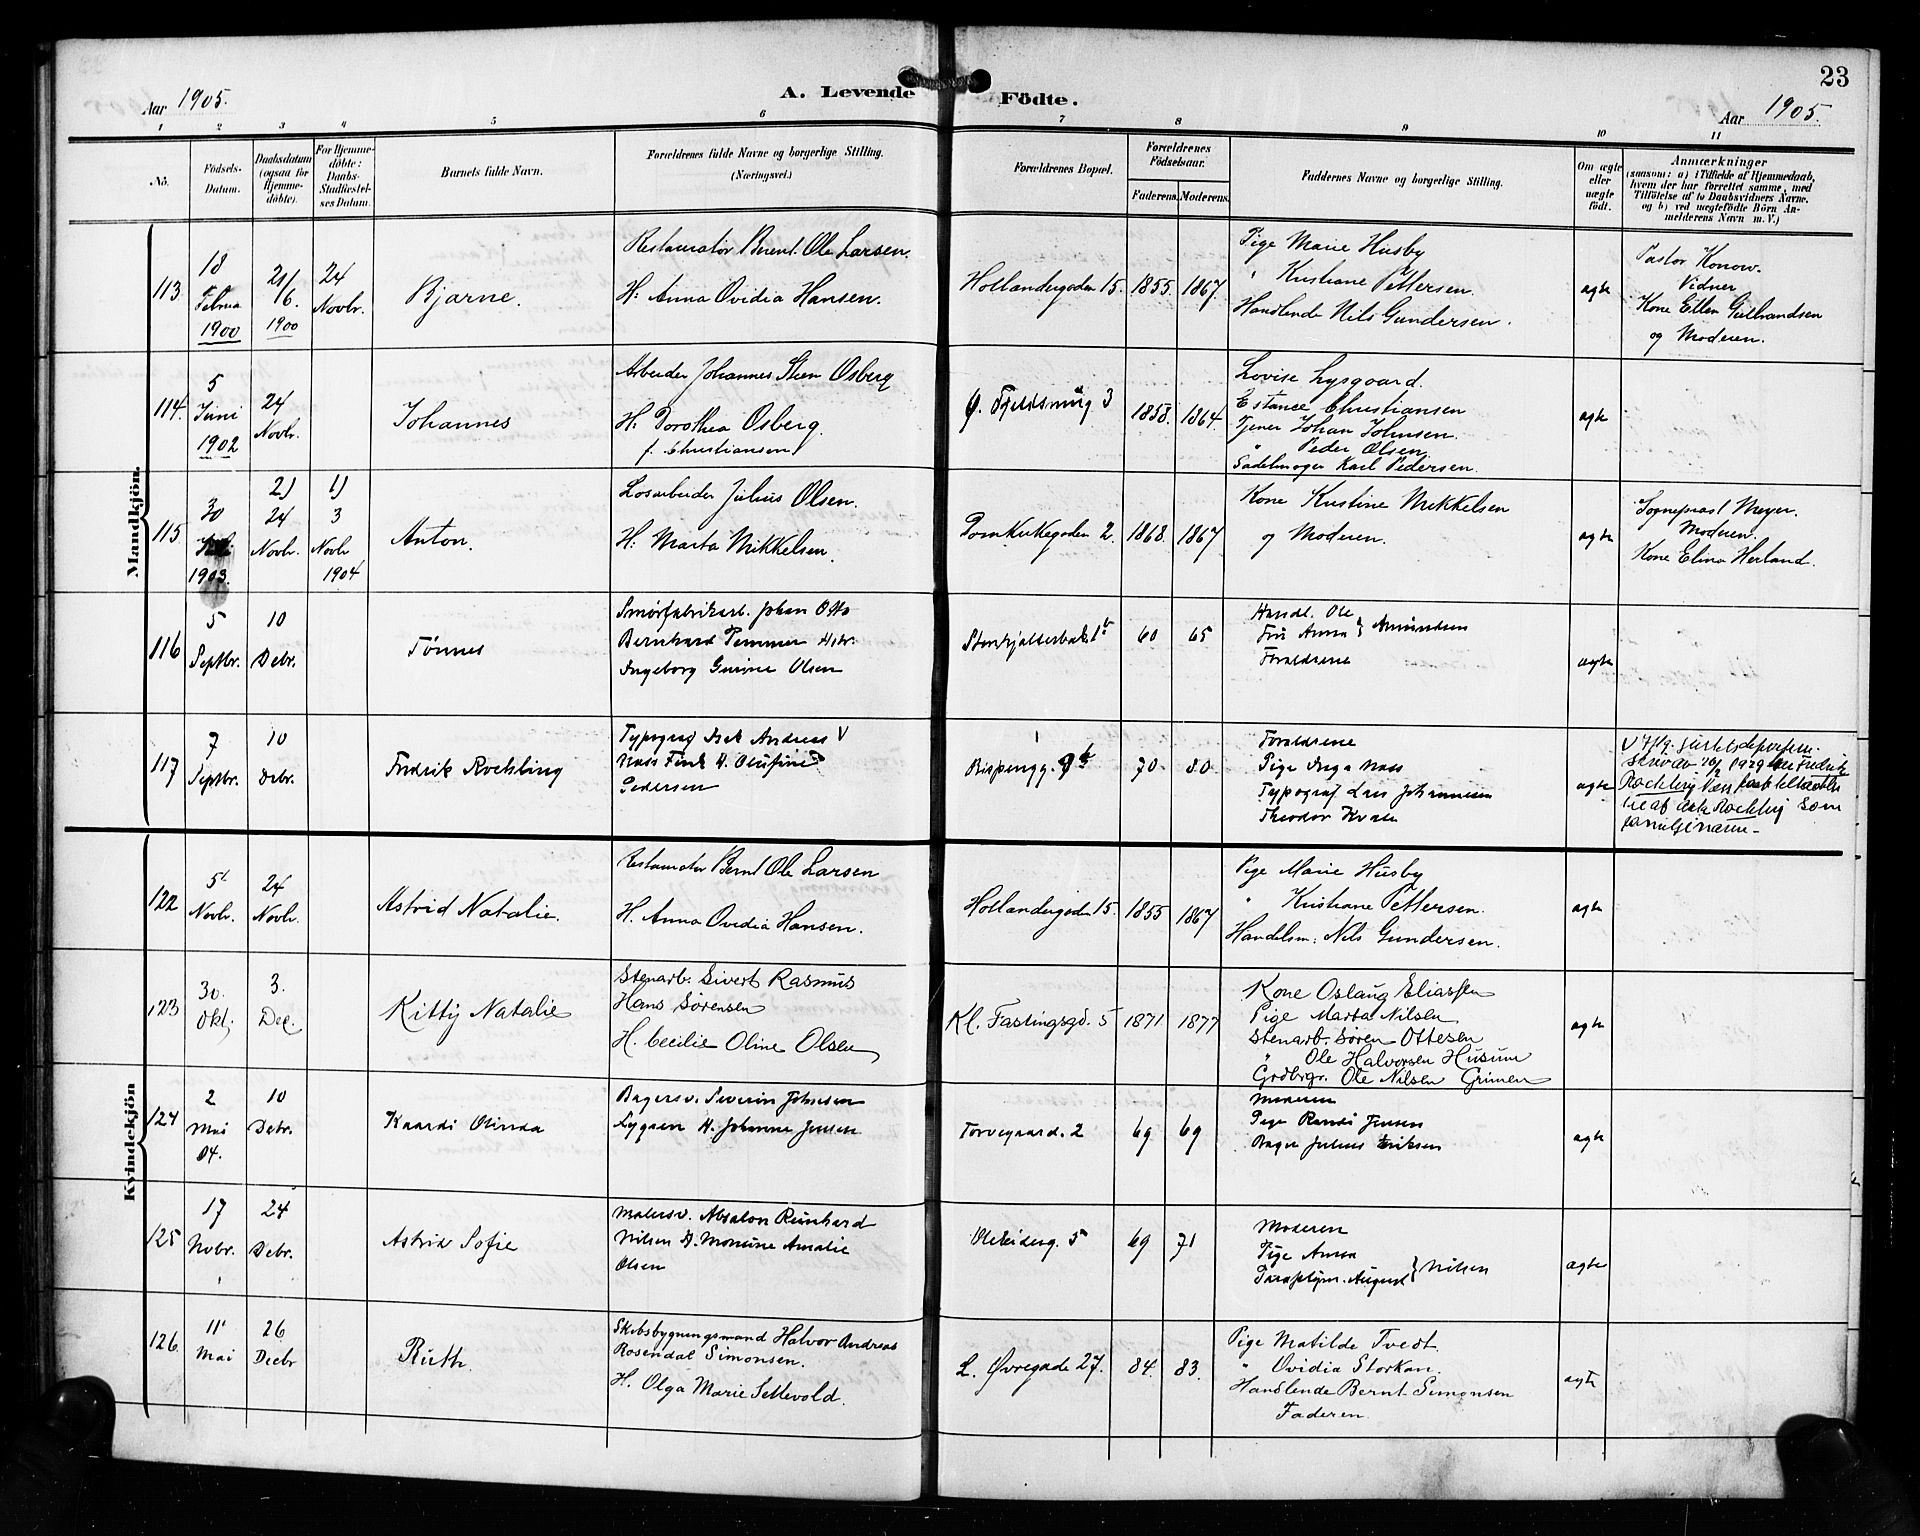 23
Aar 1905.
A. Levende Födte.
Aar 1905.
1 2 3 4 5 6 7 8 9 10 11
No.
Födsels-Datum.
Daabsdatum (ogsaa for Hjemme-döbte).
For Hjemme-döbte: Daabs-Stadfæstel-ses Datum.
Barnets fulde Navn.
Forældrenes fulde Navne og borgerlige Stilling.
(Næringsvei.)
Forældrenes Bopæl.
Forældrenes Födselsaar.
Faderens. Moderens.
Faddernes Navne og borgerlige Stilling.
Om ægte eller uægte født.
Anmærkninger
(saasom: a) i Tilfælde af Hjemmedaab,
hvem der har forrettet samme, med
Tilföielse af to Daabsvidners Navne.
og b) ved uægtefödte Börn An-
melderens Navn m. V.)
Mandkjön.
113.
18 Februa 1900
21/6 1900
24 Novbr.
Bjarne.
Restauratør Bernt Ole Larsen.
H: Anna Ovidia Hansen.
Hollendergaden 15.
1855. 1867.
Pige Marie Husby
" Kristiane Pettersen.
Handlende Nils Gundersen.
ægte
Pastor Konow.
Vidner
Kone Ellen Gulbrandsen
og Moderen.
114.
5 Juni 1902
24 Novbr.
Johannes
Arbeider Johannes Steen Osberg
H: Dorothea Osberg.
f. Christiansen
3
1858. 1864.
Lovise Lysgaard.
Estance Christiansen
Tjener Johan Johnsen.
" Peder Olsen
Sadelmager Karl Pedersen.
ægte
115.
30
1903.
2)
24 Novbr.
1)
3 Novbr 1904
Anton.
Løsarbeider Julius Olsen.
H: Marta Mikkelsen.
Domkirkegaden 2.
1868. 1867
Kone Kristine Mikkelsen
og Moderen.
ægte
Sogneprast Meyer.
Moderen.
Kone Elina Herland.
116
5 Septbr.
10 Debr.
Tønnes
Smørfabrikarb. Johan Otto
Bernhard Hstr.
Ingeborg Gurine Olsen
60 65
Handl. Ole
Fru Anna } Amundsen
Forældrene
ægte
117
7 Septbr.
10 Debr.
Fredrik Roehling
Typograf Isak Andreas V
Næss H. Olufine
Pedersen
Bispengg. 9b
70. 80.
Forældrene
Pige Inga Næss
Typograf Lars Johannesen
Theodor
ægte
V
1929 Fredrik
Roehling
Roehling som
familienavn -
Kvindekjön
122
5t Novbr.
24 Novbr.
Astrid Natalie.
Restauratør Bernt Ole Larsen
H. Anna Ovidia Hansen.
Hollendergaden 15.
1855 1867
Pige Marie Husby
" Kristiane Pettersen.
Handelsm: Nils Gundersen.
ægte
123
30. Okt.
3. Dec.
Kitty Natalie
Stenarb. Sivert Rasmus
Hans Sørensen
H. Cecilie Oline Olsen
Kl. Fastingsgd. 5
1871 1877
Kone Oslaug Eliassen
Pige Marta Nilsen
Stenarb. Søren Ottesen
" Ole Halvorsen Husum
Grdbrgr. Ole Nilsen Grimen
ægte
124
2 Mai 04.
10 Debr.
Kaardi Olinda
Bagersv. Severin Johnsen
Lygren H. Johanne Jensen
Torvegaard. 2
69 69
Moderen
Pige Randi Jensen
Bager Julius Eriksen
ægte
125
17 Nvbr.
24 Debr.
Astrid Sofie
Malersv. Absalon Reinhard
Nilsen H. Monsine Amalie
Olsen
5
69 71
Moderen
Pige Anna
August } Nilsen
ægte
126.
11' Mai
26 Decbr
Ruth.
Skibsbygningsmand Halvor Andreas
Rosendal Simonsen.
H. Olga Marie Settevold.
L. Øvregade 27.
84. 83.
Pige Matilde Tvedt
" Ovidia Storkan.
Handlende Bernt Simonsen
Faderen.
ægte